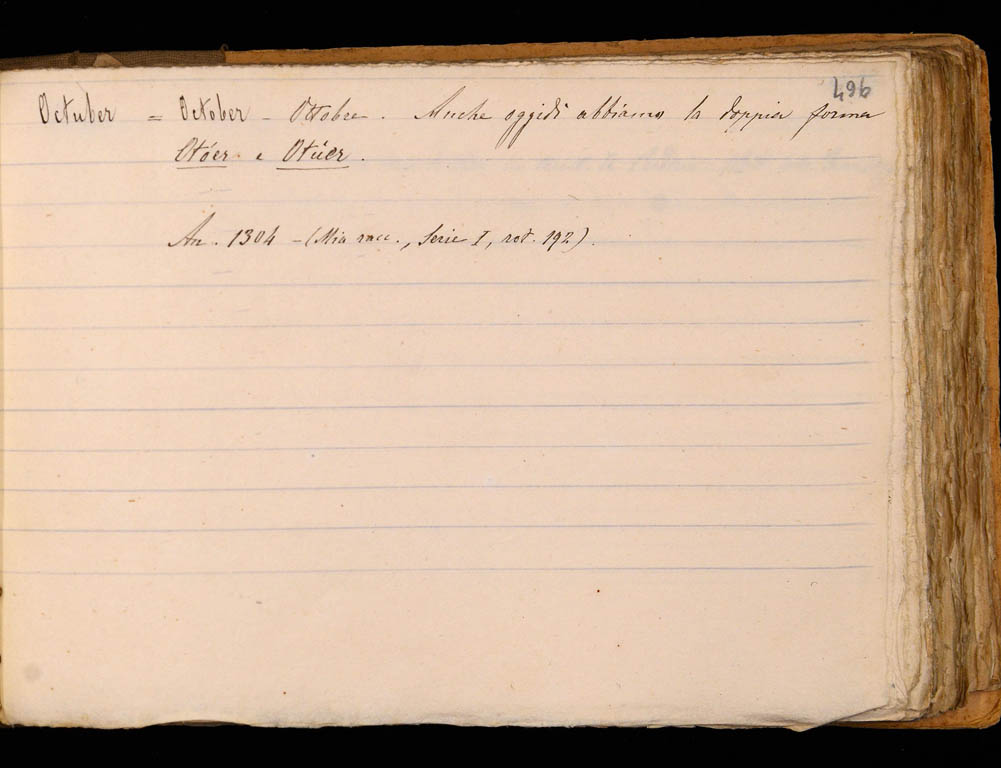 496
Octuber = October – Ottobre. Anche oggidì abbiamo la doppia forma
Otóer e Otúer.
An. 1304 – (Mia racc., Serie I, rot. 192).